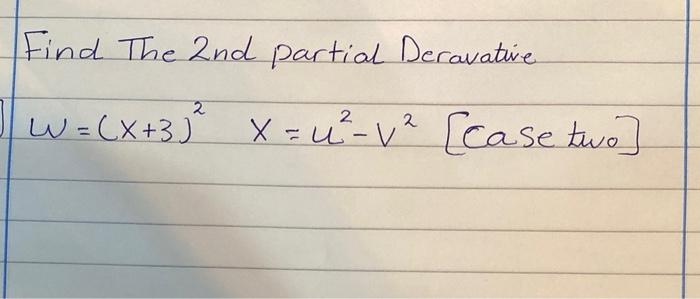 Find The 2nd partial Deravative
W = (X+3)² X = u² - v² [case two]